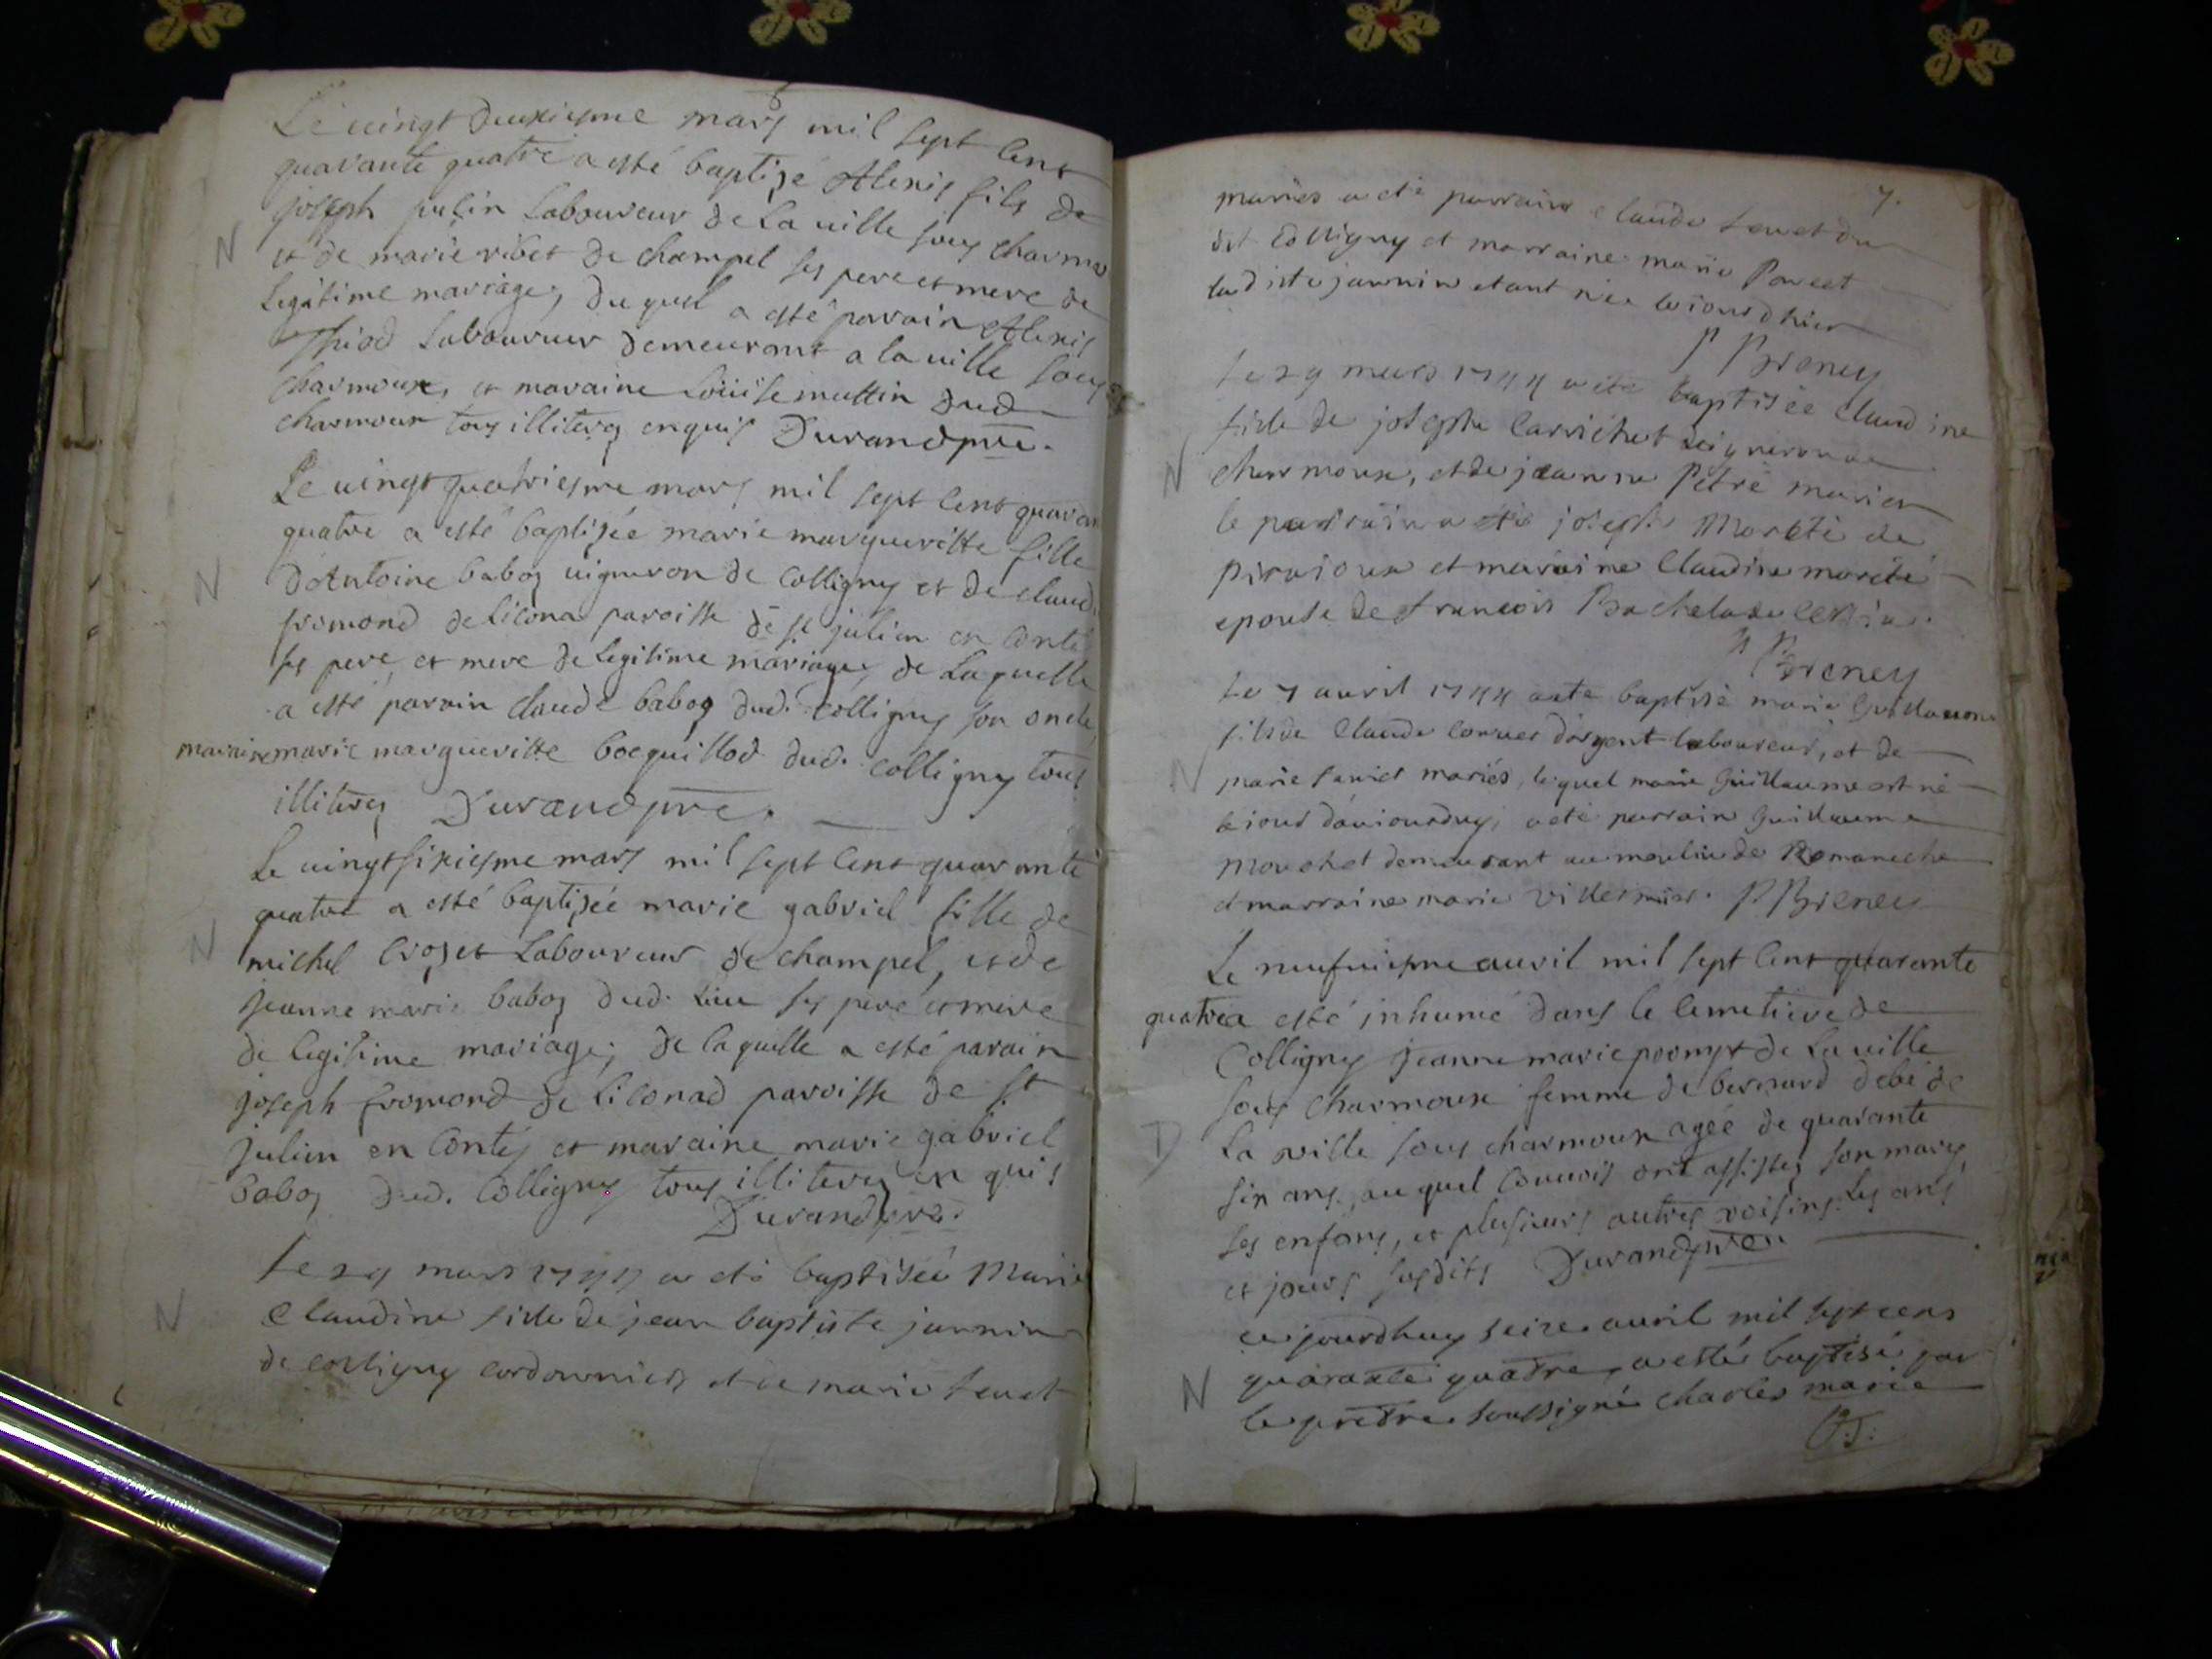 Le vingt deuxiesme mars mil sept cent
quarante quatre a esté baptizé Alexis fils de
joseph julin laboureur de la ville sous charmou
et de marie ribet de champel ses pere et mere de
legitime mariage, du quel a esté parain Alexis
laboureur demeurant a la ville sous
charmoux, et maraine Loüise muttin dud
charmoux tous illiteres enquis Durand pre.
N
Le vingt quatriesme mars mil sept cent quaran
quatre a esté baptizée marie margueritte fille
d'Antoine baboz vigneron de Colligny et de claud
fromond de licona paroisse de st julien en Conté
ses pere et mere de legitime mariage, de laquelle
a esté parain claude baboz dud. Colligny son oncle,
maraine marie margueritte bocquillod dud. Colligny tous
illiteres Durand pre.
N
Le vingt sixiesme mars mil sept cent quarante
quatre a esté baptizée marie gabriel fille de
michel crozet laboureur de champel, et de
jeanne marie baboz dud. lieu ses pere et mere
de legitime mariage, de laquelle a esté parain
joseph fromond de liconad paroisse de st
julien en Conté, et maraine marie gabriel
baboz dud. Colligny tous illiteres en quis
Durand pre.
N
Le 29 mars 1744 a eté baptisée Marie
Claudine fille de jean baptiste jannin
de colligny cordonnier et de marie
N
7.
mariés a eté parrain claude du
dit Colligny et marraine marie
ladite jannin etant née le iour d'hier
P Breney
Le 29 mars 1744 a été baptisée Claudine
fille de joseph Carrichet vigneron de
charmoux, et de jeanne Pétré mariés
le parrain a été joseph de
piraioux et maraine Claudine
epouse de francois
P Breney
N
Le 7 avril 1744 a eté baptisé marie Guillaume
fils de Claude laboureur, et de
marie mariés, lequel marie Guillaume est né
le iour d'auiourduy, a eté parrain Guillaume
Mouchet demeurant au moulin de Romaneche
et marraine marie P Breney
N
Le neufviesme avril mil sept cent quarante
quatre a esté inhumé dans le cemetiere de
Colligny jeanne marie de la ville
sous charmoux femme de bernard debé de
La ville sous charmoux agée de quarante
six ans, auquel convois ont assistes son mary,
ses enfans, et plusieurs autres voisins. Les ans
et jours susdits Durand pre
D
ce jourdhuy seize avril mil sept cens
quarante quatre, a esté baptisé par
le prétre soussigné charles marie
N